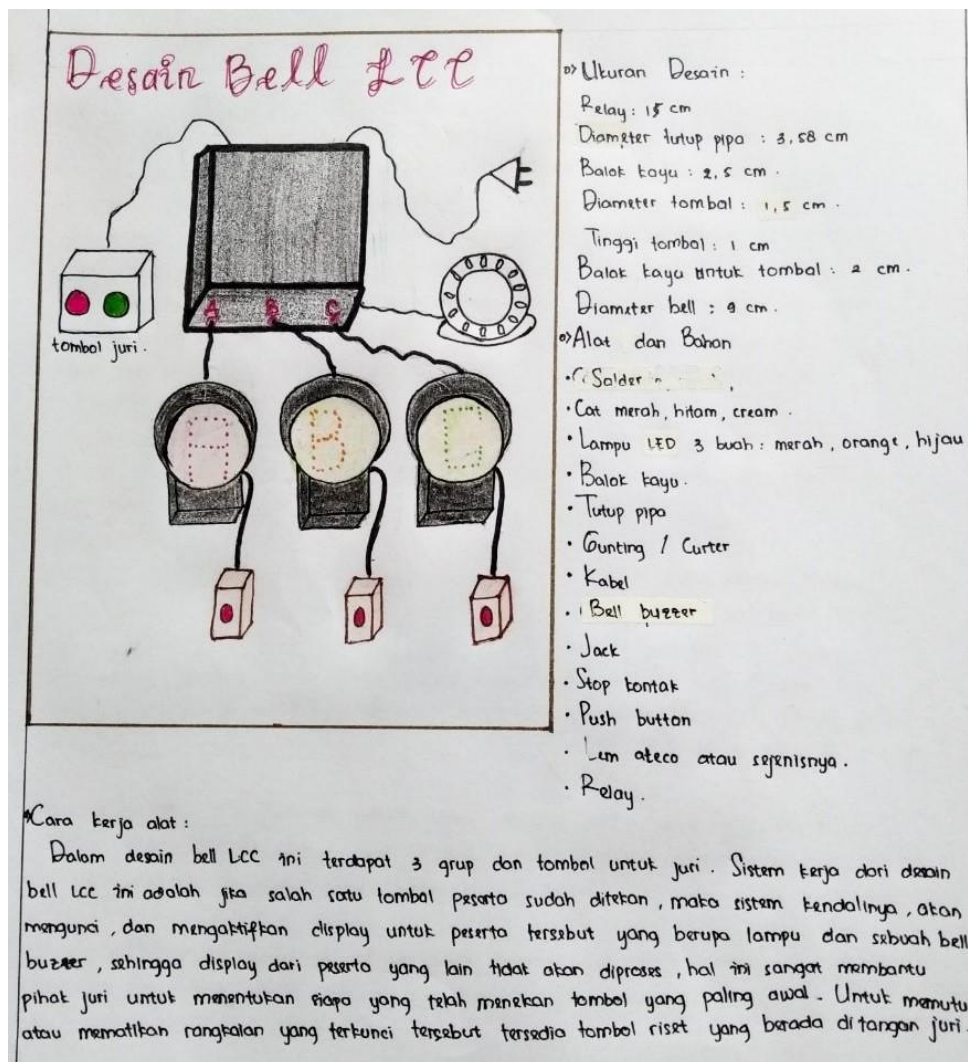 Desain Bell LCC
A B C
tombol juri.
A B C
Ukuran Desain :
Relay : 15 cm
Diameter tutup pipa : 3,58 cm
Balok kayu : 2,5 cm.
Diameter tombal : 1,5 cm.
Tinggi tombol : 1 cm
Balok kayu untuk tombol : 2 cm.
Diameter bell : 9 cm.
Alat dan Bahan
• Solder
• Cat merah, hitam, cream.
• Lampu LED 3 buah : merah, orange, hijau
• Balok kayu.
• Tutup pipa
• Gunting / Curter
• Kabel
• Bell buzzer
• Jack
• Stop kontak
• Push button
• Lem ateco atau sejenisnya.
• Relay.
Cara kerja alat :
Dalam desain bell LCC ini terdapat 3 grup dan tombol untuk juri. Sistem kerja dari desain
bell LCC ini adalah jika salah satu tombol peserta sudah ditekan, maka sistem kendalinya, akan
mengunci, dan mengaktifkan display untuk peserta tersebut yang berupa lampu dan sebuah bell
buzzer, sehingga display dari peserta yang lain tidak akan diproses, hal ini sangat membantu
pihak juri untuk menentukan siapa yang telah menekan tombol yang paling awal. Untuk memutu
atau mematikan rangkaian yang terkunci tersebut tersedia tombol riset yang berada ditangan juri.